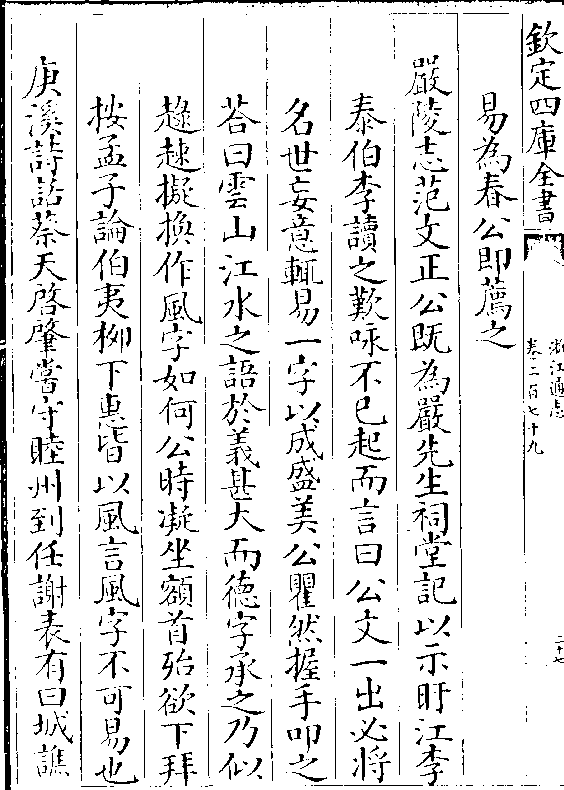 欽定四庫全書
浙江通志
卷二百七十九
二十七
易為春公即薦之
嚴陵志范文正公既為嚴先生祠堂記以示盱江李
泰伯李讀之歎咏不已起而言曰公文一出必將
名世妄意輒易一字以成盛美公瞿然握手叩之
荅曰雲山江水之語於義甚大而德字承之乃似
趢趚擬換作風字如何公時凝坐頟首殆欲下拜
按孟子論伯夷栁下惠皆以風言風字不可易也
庚溪詩話蔡天啓肇嘗守睦州到任謝表有曰城譙